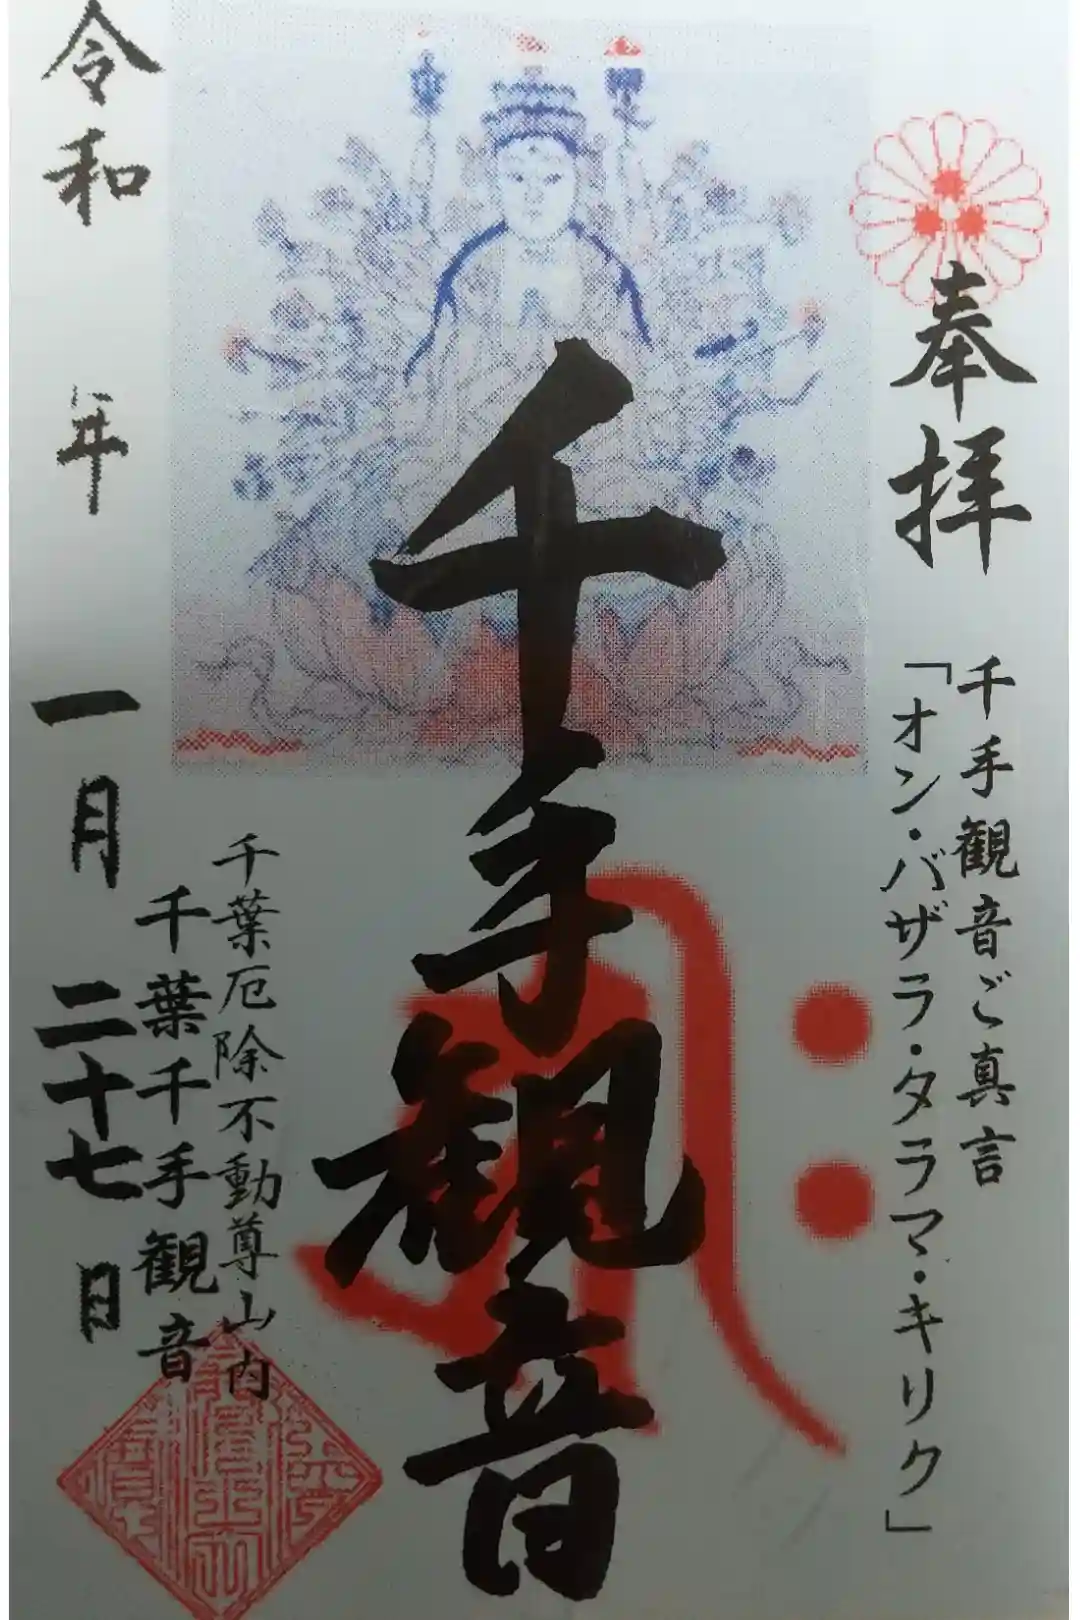 奉拝
千手観音ご真言
「オン・バザラ・タラマ・キリク」
千手観音
千葉厄除不動尊山内
千葉千手観音
令和 年 一月 二十七日